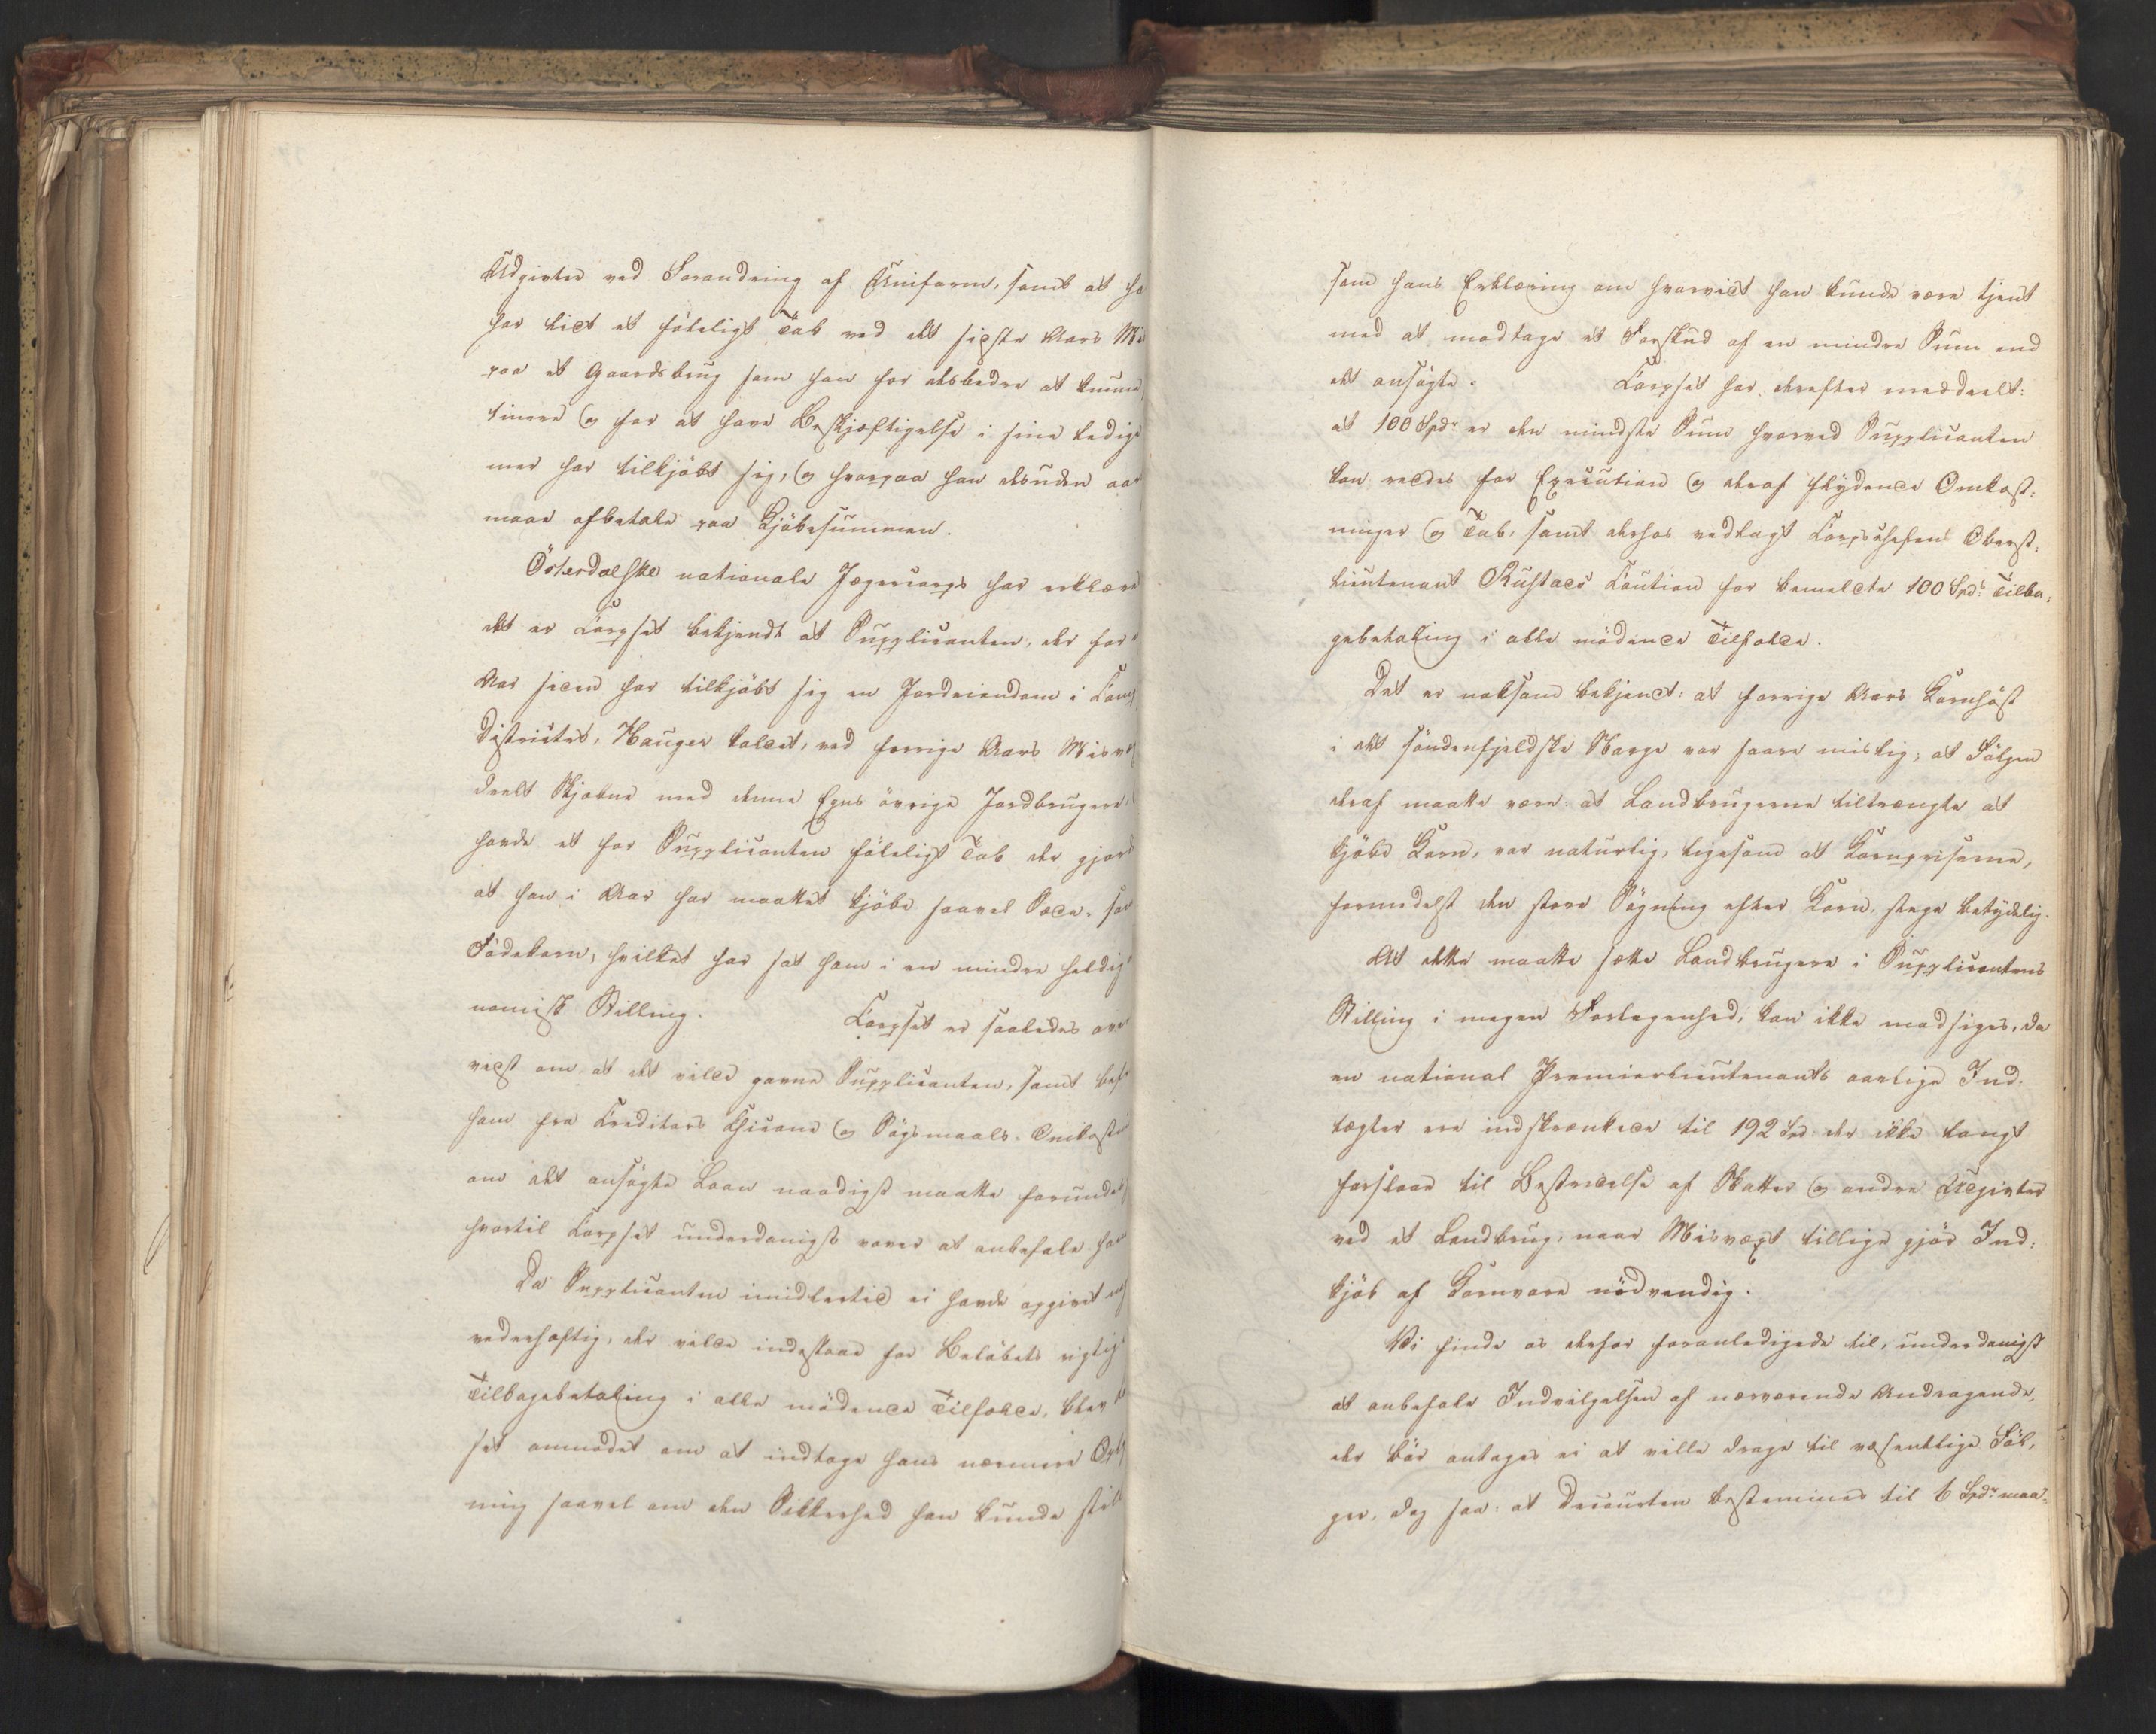 Udgivter ved Forandring af Uniform, samt at ha
har lidt et föleligt Tab ved det sidste Aars Mi
paa et Gaardsbrug som han for desbedre at kunne
tinere og for at have Beskjæftigelse i sine ledige
mer har tilkjöbt sig, og hvorpaa han desuden aar
maae afbetale paa Kjöbesummen.
Österdalske nationale Jægercorps har erklære
det er Corpset bekjendt at Supplicanten, der for
Aar siden har tilkjöbt sig en Jordeiendom i Corps
Districtet, Hauger kaldet, ved forrige Aars Misvæ
deelt Skjæbne med denne Egns övrige Jordbrugere,
havde et for Supplicanten föleligt Tab der gjord
at han i Aar har maattet kjöbe saavel Sæde- som
Födekorn, hvilket har sat ham i en mindre heldig
nomisk Stilling. Corpset er saaledes over
viist om at det vilde gavne Supplicanten, samt befr
ham fra Creditors Chicane og Sögsmaals-Omkostni
om det ansögte Laan naadigst maatte forundes
hvortil Corpset underdanigst vover at anbefale ham
Da Supplicanten imidlertid ei havde opgivet nog
vederhæftig, der vilde indestaae for Belöbets rigtig
Tilbagebetaling i alle mödende Tilfælde, blev
set anmodet om at indtage hans nærmere Oply
ning saavel om den Sikkerhed han kunde stille
som hans Erklæring om hvorvidt han kunde være tjent
med at modtage et Forskud af en mindre Sum end
det ansögte. Corpset har derefter meddeelt:
at 100 Spdr er den mindste Sum hvorved Supplicanten
kan reddes for Execution og deraf flydende Omkost-
ninger og Tab, samt derhos vedlagt Corpschefens Oberst-
lieutenant Rustads Caution for bemeldte 100 Spdr Tilba-
gebetaling i alle mödende Tilfælde.
Det er noksom bekjendt: at forrige Aars Kornhöst
i det söndenfjeldske Norge var saare mislig; at Fölgen
deraf maatte være: at Landbrugerne tiltrængte at
kjöbe Korn, var naturlig, ligesom at Kornpriserne,
formedelst den store Sögning efter Korn, stege betydelig.
At dette maatte sætte Landbrugere i Supplicantens
Stilling i megen Forlegenhed, kan ikke modsiges, da
en national Premierlieutenants aarlige Ind-
tægter ere indskrænkede til 192 Spd der ikke langt
forslaae til Bestridelse af Skatter og andre Udgivter
ved et Landbrug, naar Misvæxt tillige gjör Ind-
kjöb af Kornvare nödvendig.
Vi finde os derfor foranledigede til, underdanigst
at anbefale Indvilgelsen af nærværende Andragende,
der bör antages ei at ville drage til væsentlige Föl-
ger, dog saa: at Decourten bestemmes til 6 Spdr maa-